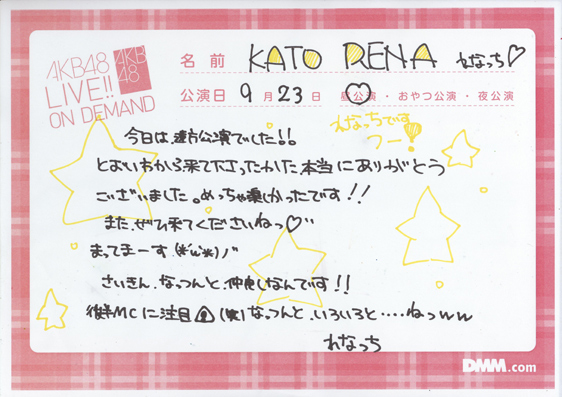 AKB48
LIVE!!
ON DEMAND
AKB
48
名前 KATO RENA れなっち♡
公演日 9月23日 昼公演・おやつ公演・夜公演
れなっちです
つー!
今日は、遠方公演でした!!
とおいおから来て下さったかた本当にありがとう
ございました。めっちゃ楽しかったです!!
また、ぜひ来てくださいねっ♡
まってまーす(*´ω`*)ノ"
さいきん、なっつんと、仲良しなんです!!
後半MCに注目(笑)なっつんと、いろいろと‥‥ねっww
れなっち
DMM.com